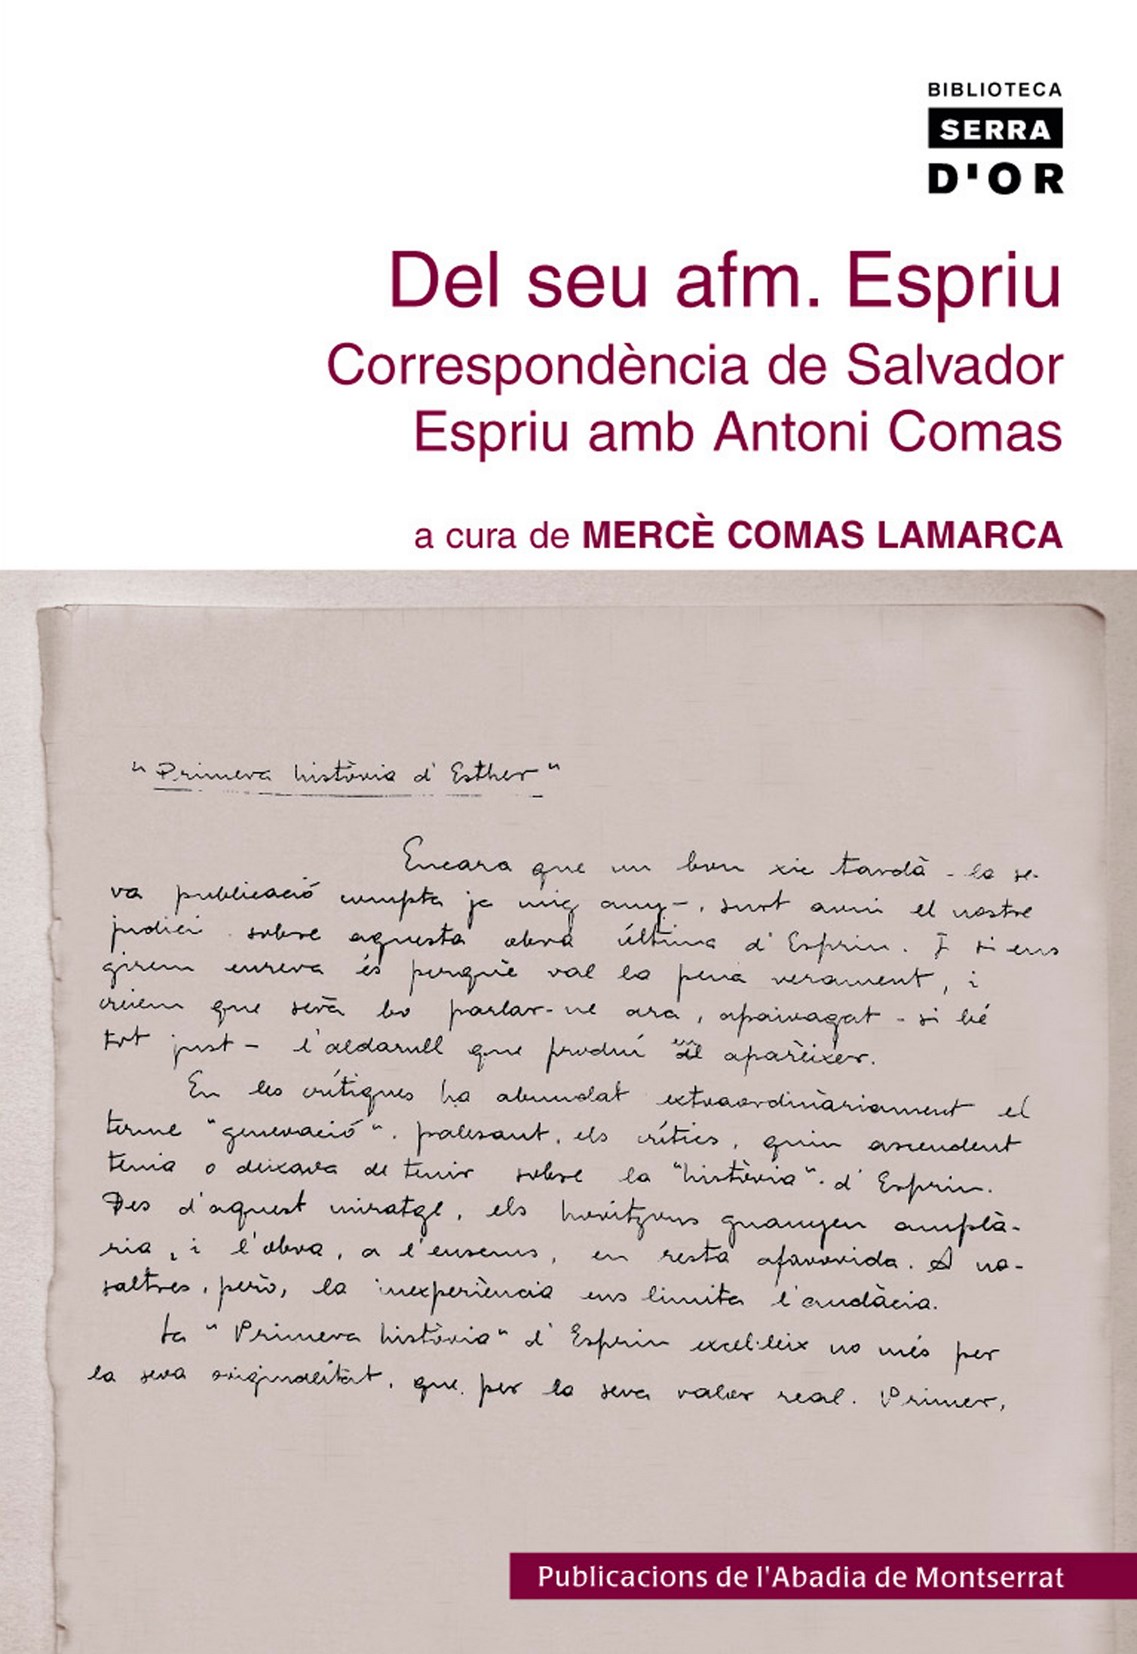 BIBLIOTECA
SERRA
D'OR
Del seu afm. Espriu
Correspondència de Salvador
Espriu amb Antoni Comas
a cura de MERCÈ COMAS LAMARCA
"Primera història d'Esther"
Encara que un bon xic tardà - la se-
va publicació compta ja mig any -, surt avui el nostre
judici sobre aquesta obra última d'Espriu. I si ens
girem enrera és perquè val la pena verament, i
creiem que serà bo parlar-ne ara, apaivagat - si bé
tot just - l'aldarull que produí al aparèixer.
En les crítiques ha abundat extraordinàriament el
terme "generació", palesant, els crítics, quin ascendent
tenia o deixava de tenir sobre la "història" d'Espriu.
Des d'aquest miratge, els horitzons guanyen amplà-
ria, i l'obra, a l'ensems, en resta afavorida. A no-
saltres, però, la inexperiència ens limita l'audàcia.
La "Primera història" d'Espriu excel·leix no més per
la seva originalitat, que per la seva valor real. Primer,
Publicacions de l'Abadia de Montserrat